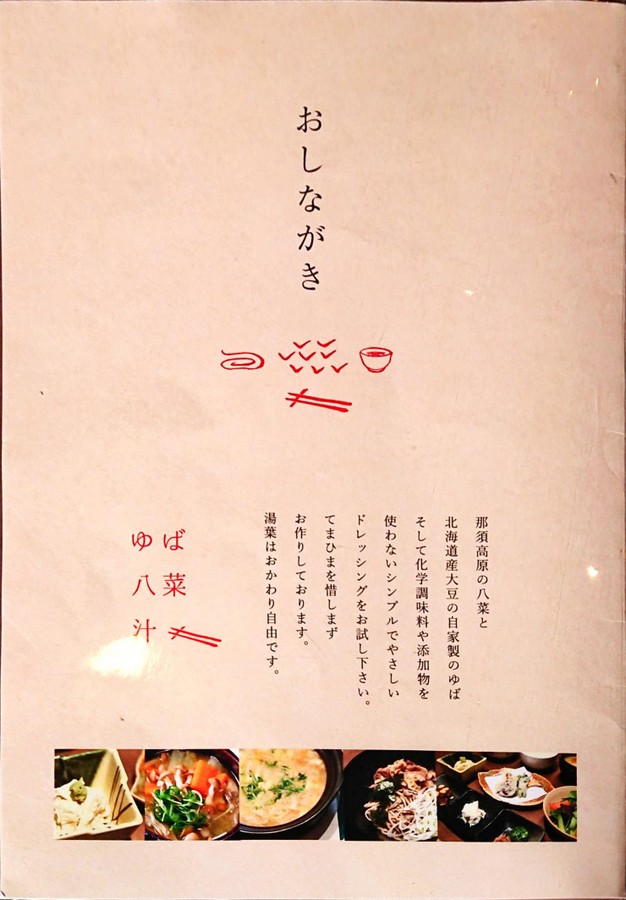 おしながき
那須高原の八菜と
北海道産大豆の自家製のゆば
そして化学調味料や添加物を
使わないシンプルでやさしい
ドレッシングをお試し下さい。
てまひまを惜しまず
お作りしております。
湯葉はおかわり自由です。
ゆば
八菜
汁